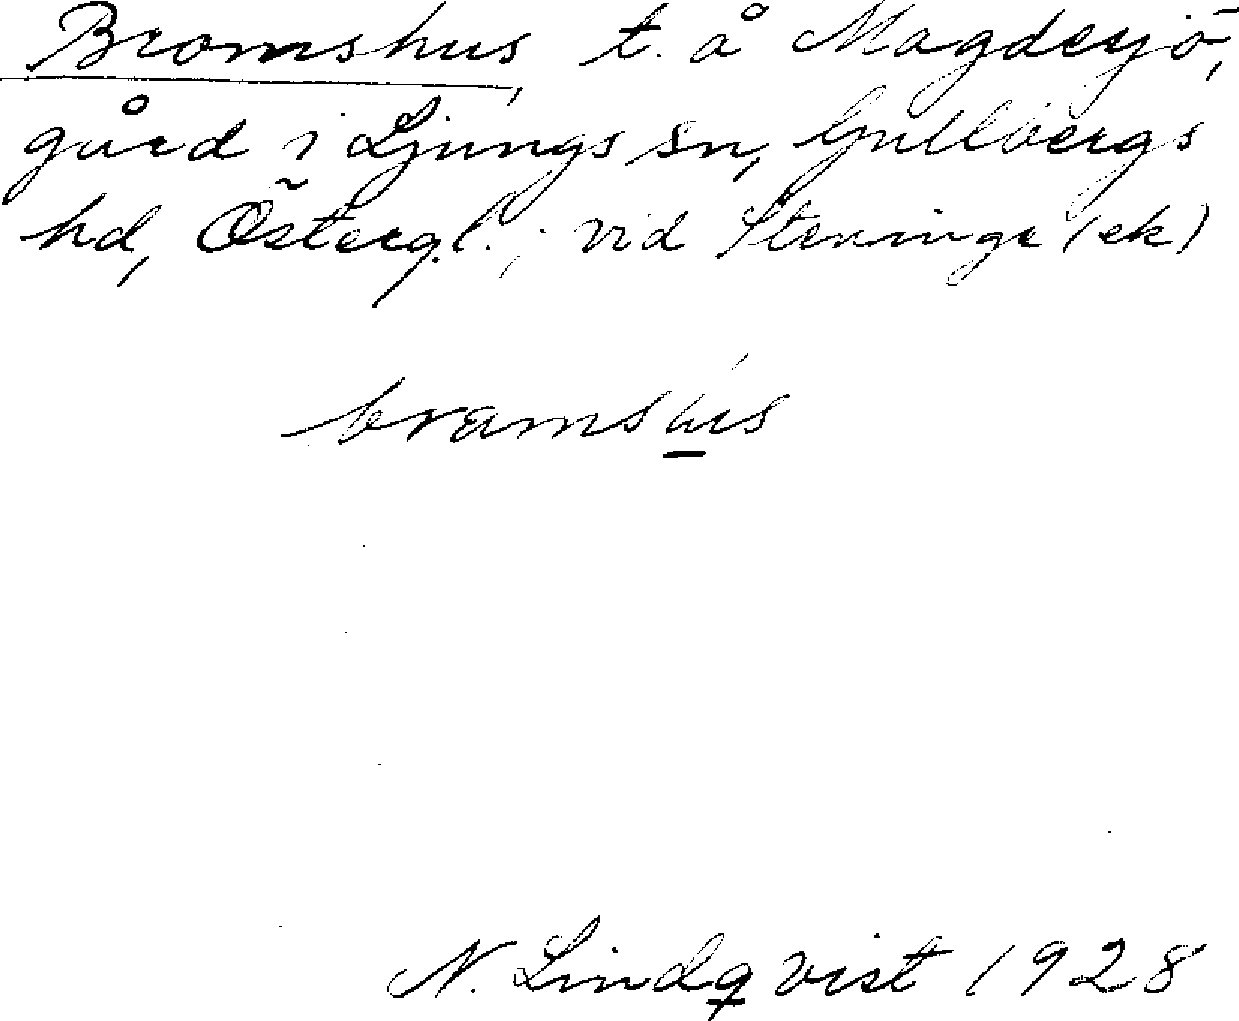 Bromshus, t. å Magdesjö,
gård i Ljungs sn, Gullbergs
hd, Östergl.; vid Steninge (ek)
bramshus
N. Lindqvist 1928